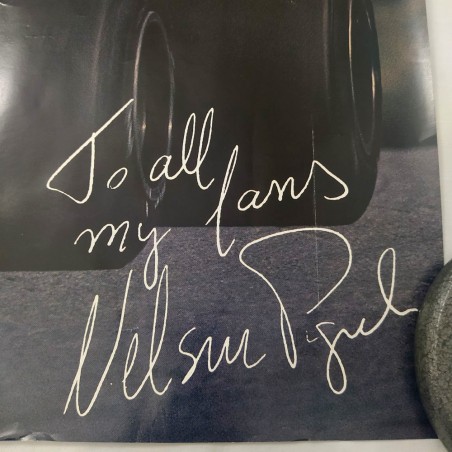 To all
my fans
Nelson Piquet